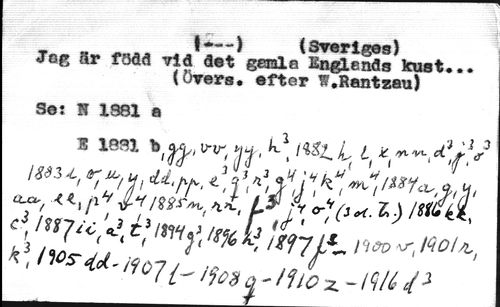 (---) (Sveriges)
Jag är född vid det gamla Englands kust...
(Övers. efter W.Rantzau)
Se: N 1881 a
E 1881 b, gg, vv, yy, h³, 1882 h, l, x, nn, d³, j³, o³
1883 i, o, u, y, dd, pp, e³, q³, r³, g⁴, j⁴, k⁴, m⁴, 1884 a, g, y,
aa, ee, p⁴, v⁴ 1885 n, rr, f³, j⁴, o⁴, (3 d. tr.) 1886 kk,
c³, 1887 ii, a³, t³, 1894 g³, 1896 h³, 1897 f³ - 1900 v, 1901 r,
k³, 1905 dd - 1907 l - 1908 q - 1910 z - 1916 d³